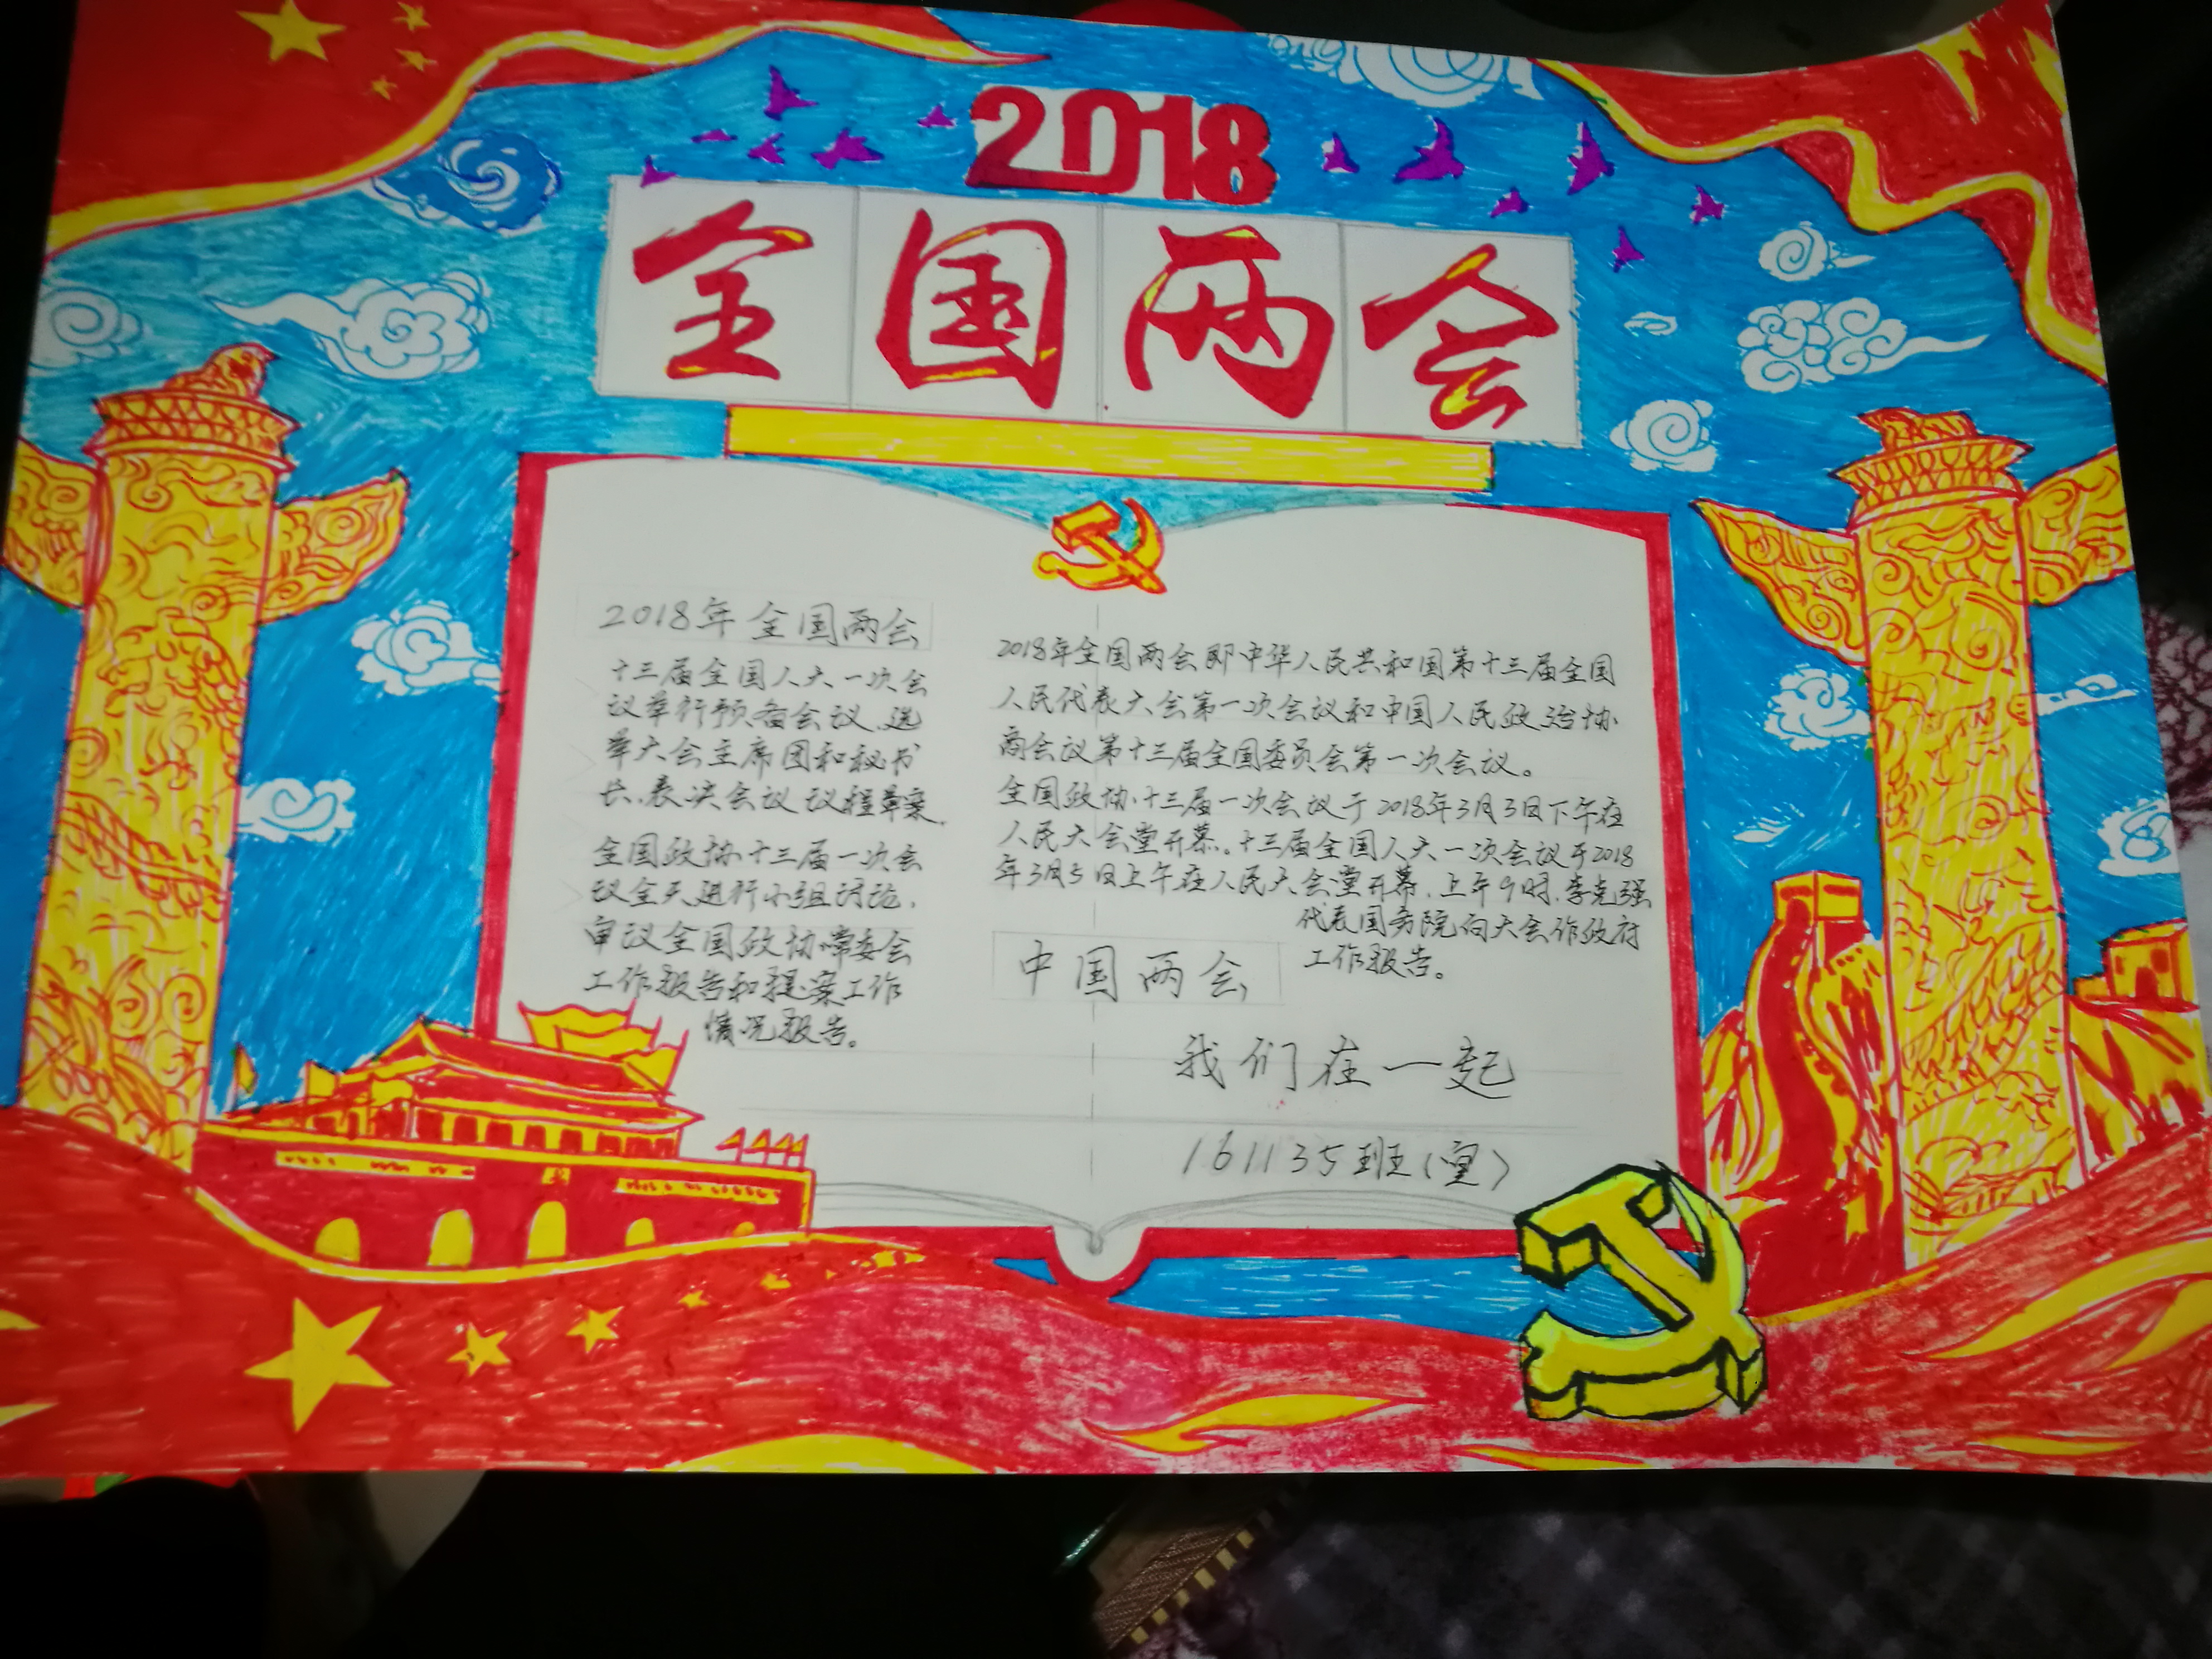 2018
全国两会
2018年全国两会
十三届全国人大一次会
议举行预备会议、选
举大会主席团和秘书
长、表决会议议程草案.
全国政协十三届一次会
议全天进行小组讨论,
审议全国政协常委会
工作报告和提案工作
情况报告。
2018年全国两会即中华人民共和国第十三届全国
人民代表大会第一次会议和中国人民政治协
商会议第十三届全国委员会第一次会议。
全国政协十三届一次会议于2018年3月3日下午在
人民大会堂开幕。十三届全国人大一次会议于2018
年3月5日上午在人民大会堂开幕,上午9时,李克强
代表国务院向大会作政府
工作报告。
中国两会
我们在一起
161135班(宣)